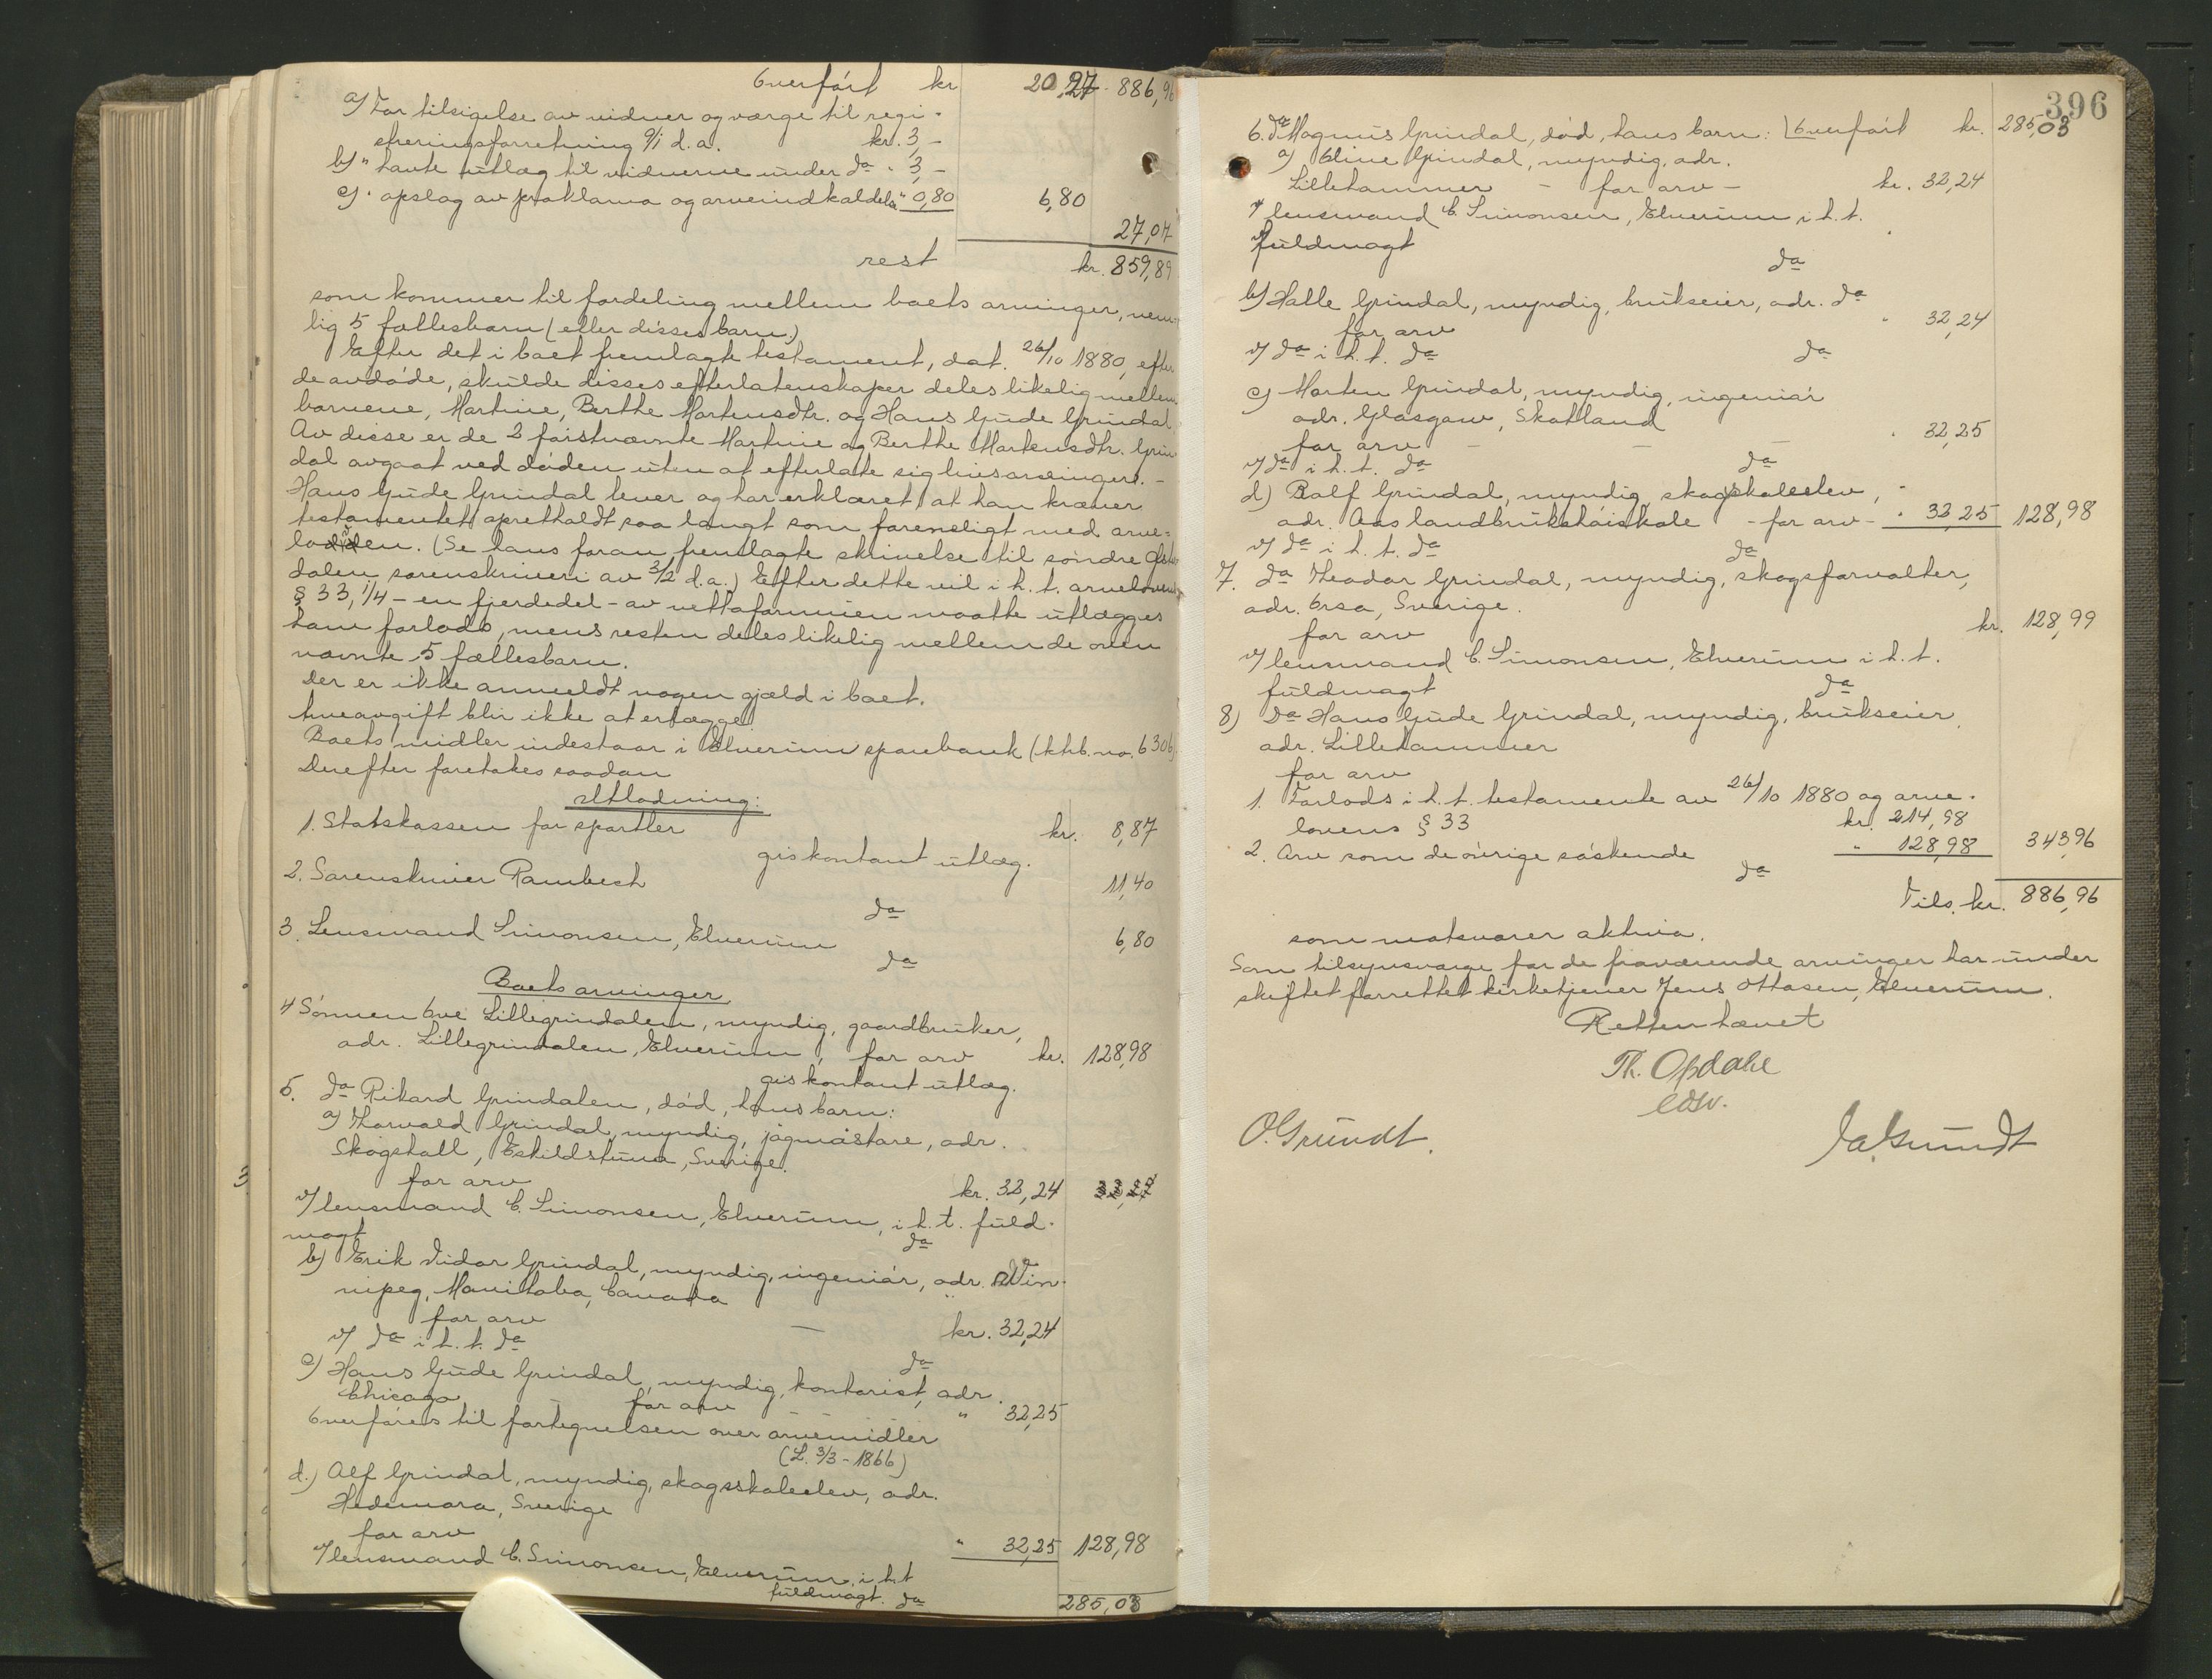 Overført kr 20,27 886,96
a) For tilsigelse av vidner og værge til regi-
streringsforretning 9/1 d.a. kr. 3,-
b) " havte utlæg til vidnerne under do " 3,-
c) " opslag av proklama og arveindkaldelse " 0,80 6,80
27,07
rest kr. 859,89
som kommer til fordeling mellem boets arvinger, nem-
lig 5 fællesbarn (eller disses barn)
Efter det i boet fremlagte testament, dat. 26/10 1880, efter
de avdøde, skulde disses efterlatenskaper deles likelig mellem
barnene, Martine, Berthe Martensdtr. og Hans Gude Grindal
Av disse er de 2 førstnævnte Martine og Berthe Martensdtr. Grin
dal avgaat ved døden uten at efterlate sig livsarvinger. -
Hans Gude Grindal lever og har erklæret at han kræver
testamentet opretholdt saa langt som foreneligt med arve-
lodden. (Se hans foran fremlagte skrivelse til søndre Øster
dalen sorenskriveri av 3/2 d.a.) Efter dette vil i h. t. arvelovens
§ 33, 1/4 - en fjerdedel - av nettoformuen maatte utlægges
ham forlods, mens resten deles likelig mellem de oven
nævnte 5 fællesbarn.
Der er ikke anmeldt nogen gjæld i boet.
Arveavgift blir ikke at erlægge
Boets midler indestaar i Elverum sparebank (ktrb. no. 6306)
Derefter foretakes saadan
Utlodning:
1. Statskassen for sportler kr. 8,87
gis kontant utlæg.
2. Sorenskriver Rambech 11,40
do
3. Lensmand Simonsen, Elverum 6,80
do
Boets arvinger
4 Sønnen Ove Lillegrindalen, myndig, gaardbruker,
adr. Lillegrindalen, Elverum, for arv kr. 128,98
gis kontant utlæg.
5. do Rikard Grindalen, død, hans barn:
a) Thorvald Grindal, myndig, jägmästare, adr.
Skogstall, Eskildstuna, Sverige.
for arv kr. 32,24
v/ lensmand C. Simonsen, Elverum, i h. t. fuld-
magt do
b) Erik Vidar Grindal, myndig, ingeniør, adr. Win-
nipeg, Manitoba, Canada
for arv - kr. 32,24
v/ do i h. t. do
do
c) Hans Gude Grindal, myndig, kontorist, adr.
Chicago - for arv " 32,25
Overføres til fortegnelsen over arvemidler
(L. 3/3 - 1866)
d.) Alf Grindal, myndig, skogsskoleelev, adr.
Hedemora, Sverige
for arv " 32,25 128,98
v/ lensmand C. Simonsen, Elverum, i h.t
fuldmagt. do
285,03
396
6. do Magnus Grindal, død, hans barn: Overført kr. 285,03
a) Oline Grindal, myndig, adr.
Lillehammer - for arv - kr. 32,24
v/ lensmand C. Simonsen, Elverum i h. t.
fuldmagt
do
b) Halle Grindal, myndig, brukseier, adr. do
for arv " 32,24
v/ do i h. t. do do
c) Morten Grindal, myndig, ingeniør
adr. Glasgow, Skotland
for arv - - - " 32,25
v/ do i h. t. do do
d) Ralf Grindal, myndig, skogskoleelev,
adr. Aas landbrukshøiskole - for arv - " 32,25 128,98
v/ do i h. t. do do
7. do Theodor Grindal, myndig, skogsforvalter,
adr. Orsa, Sverige.
for arv kr. 128,99
v/ lensmand C. Simonsen, Elverum i h. t.
fuldmagt do
8) do Hans Gude Grindal, myndig, brukseier,
adr. Lillehammer
for arv
1. Forlods i h. t. testamente av 26/10 1880 og arve-
lovens § 33 kr. 214,98
2. Arv som de øvrige søskende " 128,98 343,96
do
Tils. kr. 886,96
som motsvarer aktiva.
Som tilsynsværge for de fraværende arvinger har under
skiftet forrettet kirketjener Jens Ottosen, Elverum.
Retten hævet
Th. Opdahl
edsv.
O. Grundt.
Ja. Grundt